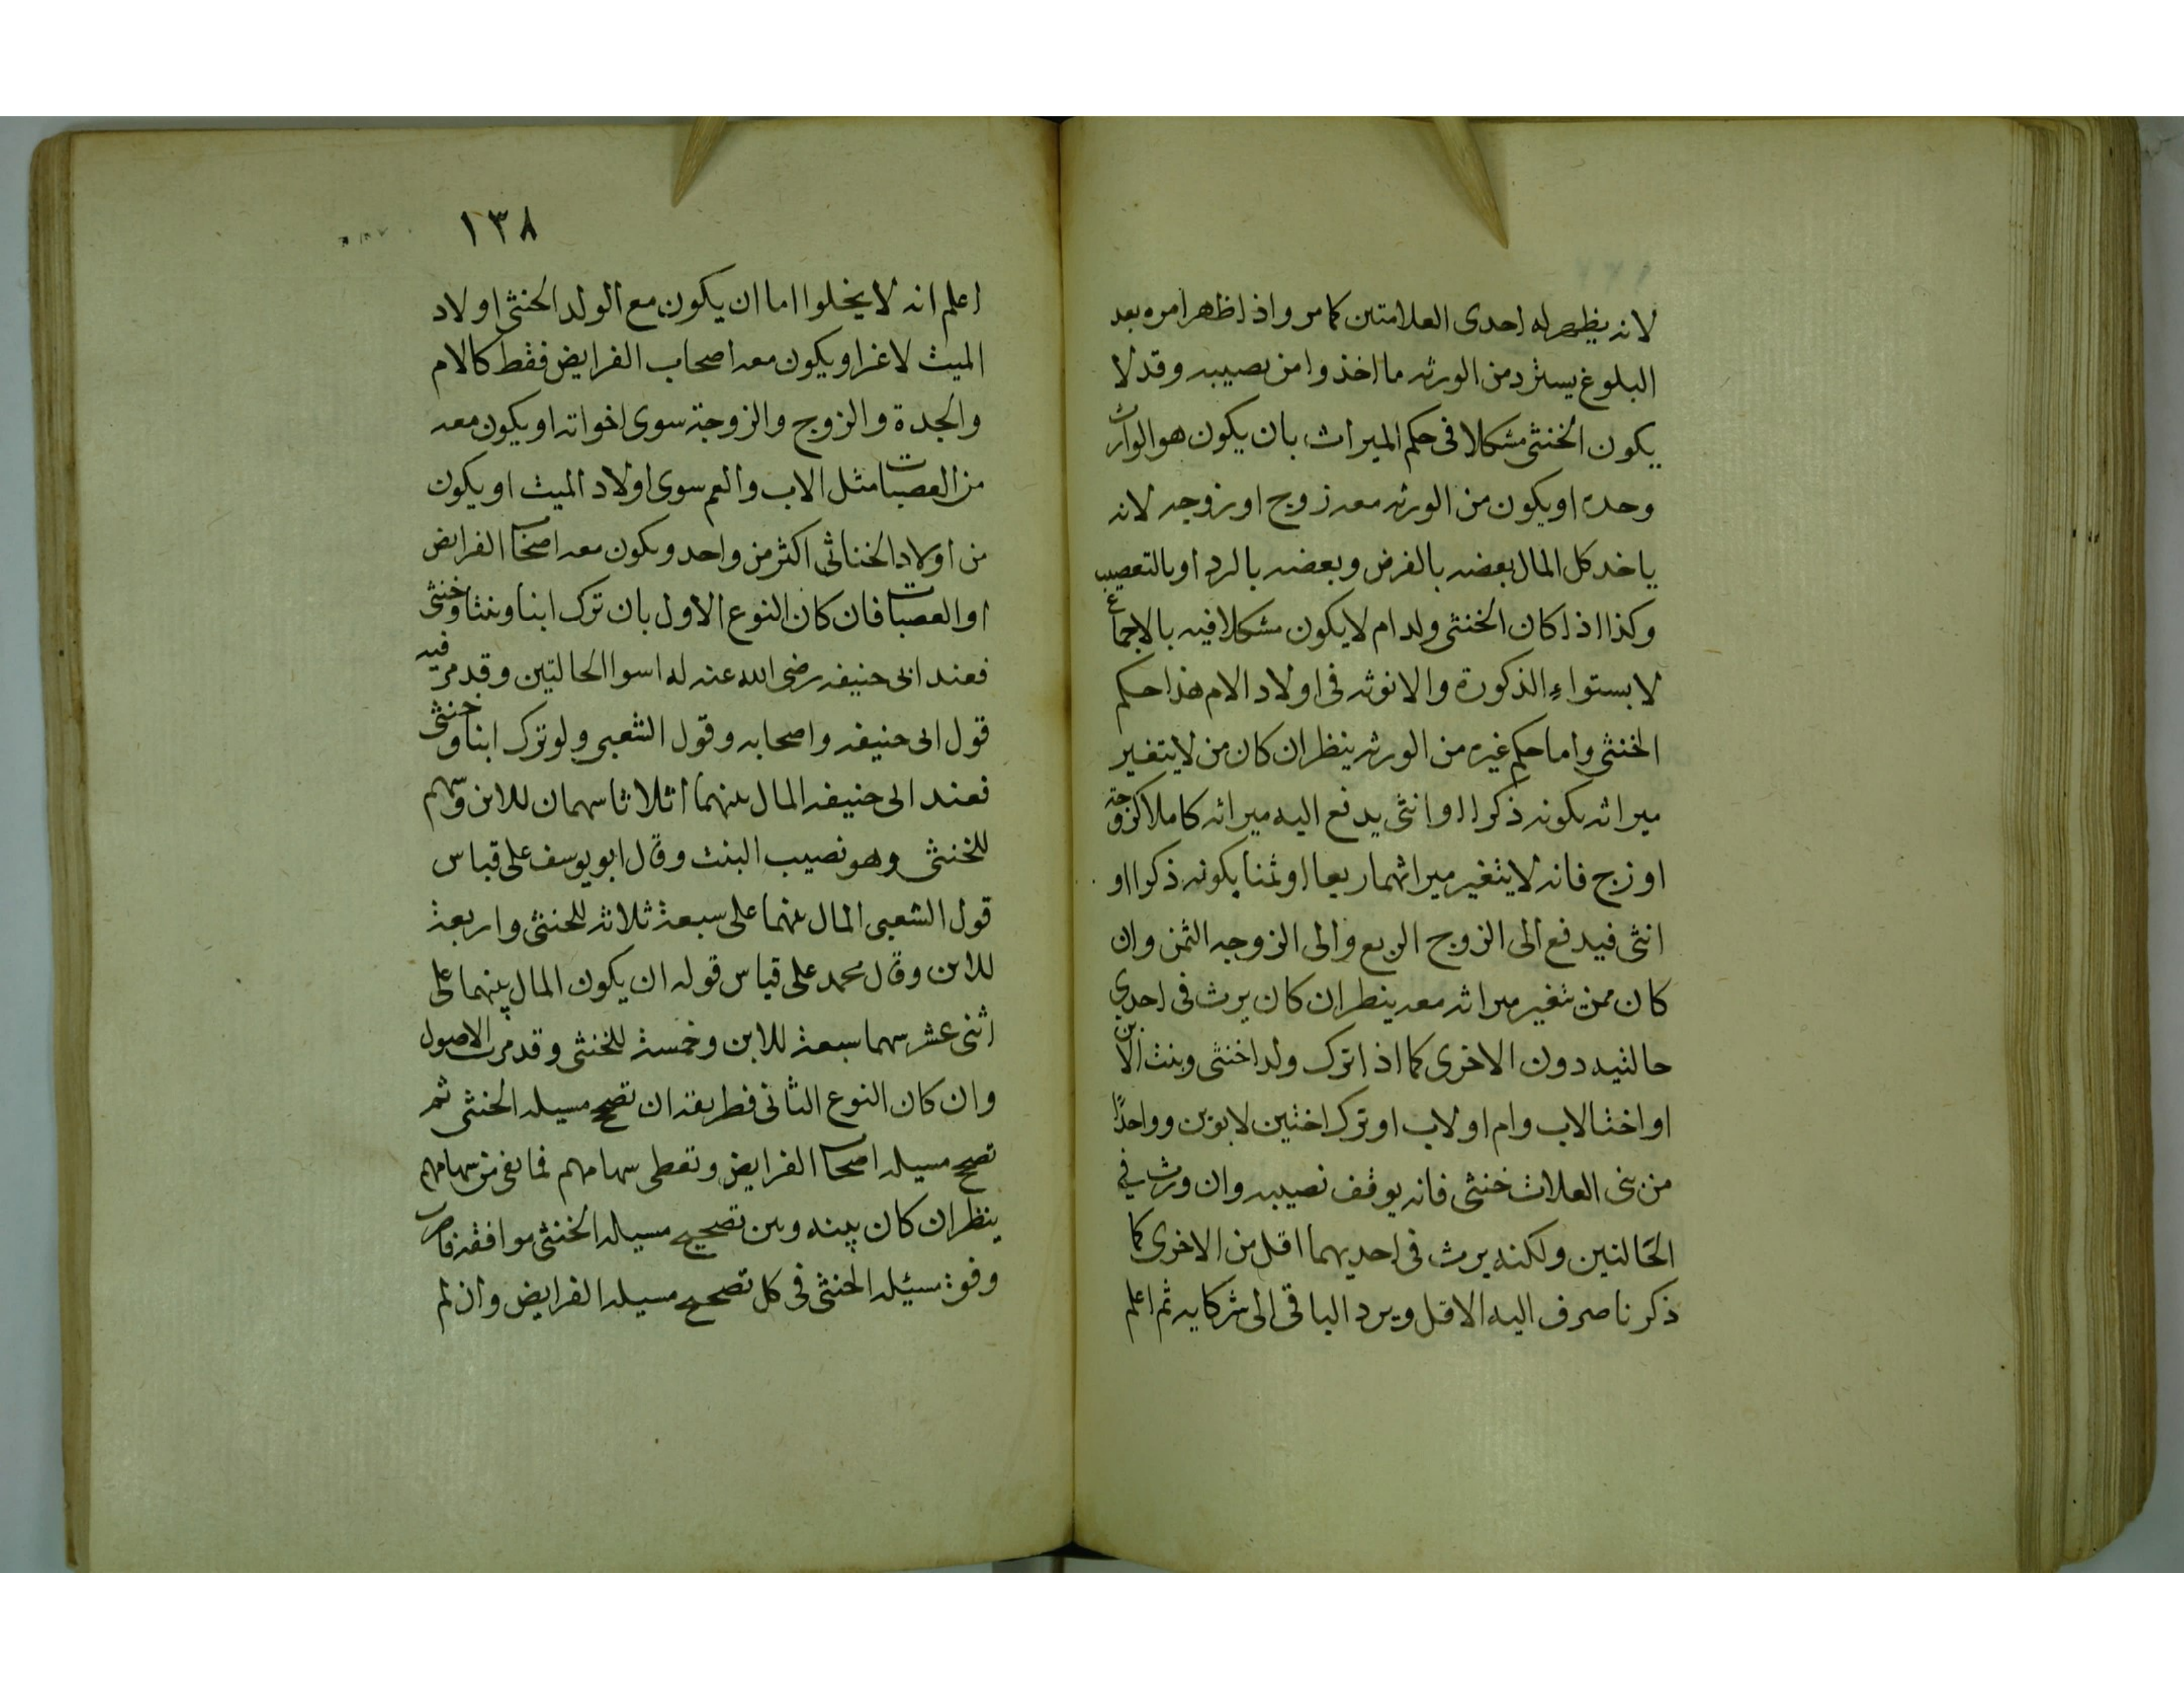 لانه يظهر له احدى العلامتين كما مر واذا ظهر امره بعد
البلوغ يسترد من الورثه ما اخذوا من نصيبه وقد لا
يكون الخنثى مشكلا فى حكم الميراث بان يكون هو الوارث
وحده او يكون من الورثه معه زوج او زوجه لانه
ياخد كل المال بعضه بالفرض وبعضه بالرد او بالتعصيب
وكذا اذا كان الخنثى ولد ام لا يكون مشكلا فيه بالاجماع
لاستواء الذكورة والانوثه فى اولاد الام هذا حكم
الخنثى واما حكم غيره من الورثه ينظر ان كان من لا يتغير
ميراثه بكونه ذكرا او انثى يدفع اليه ميراثه كاملا كزوجة
او زج فانه لا يتغير ميراثهما ربعا او ثمنا بكونه ذكرا او
انثى فيدفع الى الزوج الربع والى الزوجه الثمن وان
كان ممن يتغير ميراثه معه ينظر ان كان يرث فى احدى
حالتيه دون الاخرى كما اذا ترك ولدا خنثى وبنت الابن
او اختا لاب وام او لاب او ترك اختين لابوين وواحدًا
من بنى العلات خنثى فانه يوقف نصيبه وان ورث في
الحَالتين ولكنه يرث فى احديهما اقل من الاخرى كما
ذكرنا صرف اليه الاقل ويرد الباقى الى شركايه ثم اعلم
١٣٨
اعلم انه لا يخلوا اما ان يكون مع الولد الخنثى اولاد
الميت لا غز او يكون معه اصحاب الفرايض فقط كالام
والجدة والزوج والزوجة سوى اخواته او يكون معه
من العصبات مثل الاب والعم سوى اولاد الميت او يكون
من اولاد الخناثى اكثر من واحد ويكون معه اصحاب الفرايض
او العصبات فان كان النوع الاول بان ترك ابنا وبنتا وخنثى
فعند ابى حنيفه رضى الله عنه له اسوا الحالتين وقد مر فيه
قول ابى حنيفه واصحابه وقول الشعبى ولو ترك ابنا وخنثى
فعند ابى حنيفه المال بينهما اثلاثا سهمان للابن وسهم
للخنثى وهو نصيب البنت وقال ابو يوسف على قياس
قول الشعبى المال بينهما على سبعة ثلاثه للخنثى واربعة
للابن وقال محمد على قياس قوله ان يكون المال بينهما على
اثنى عشر سهما سبعة للابن وخمسة للخنثى وقد مرت الاصول
وان كان النوع الثانى فطريقه ان تصحح مسيله الخنثى ثم
تصحح مسيله اصحاب الفرايض وتعطى سهامهم فما بقى من سهامهم
ينظر ان كان بينه وبين تصحيح مسيله الخنثى موافقه فاضرب
وفق مسئيله الخنثى فى كل تصحيح مسيله الفرايض وان لم